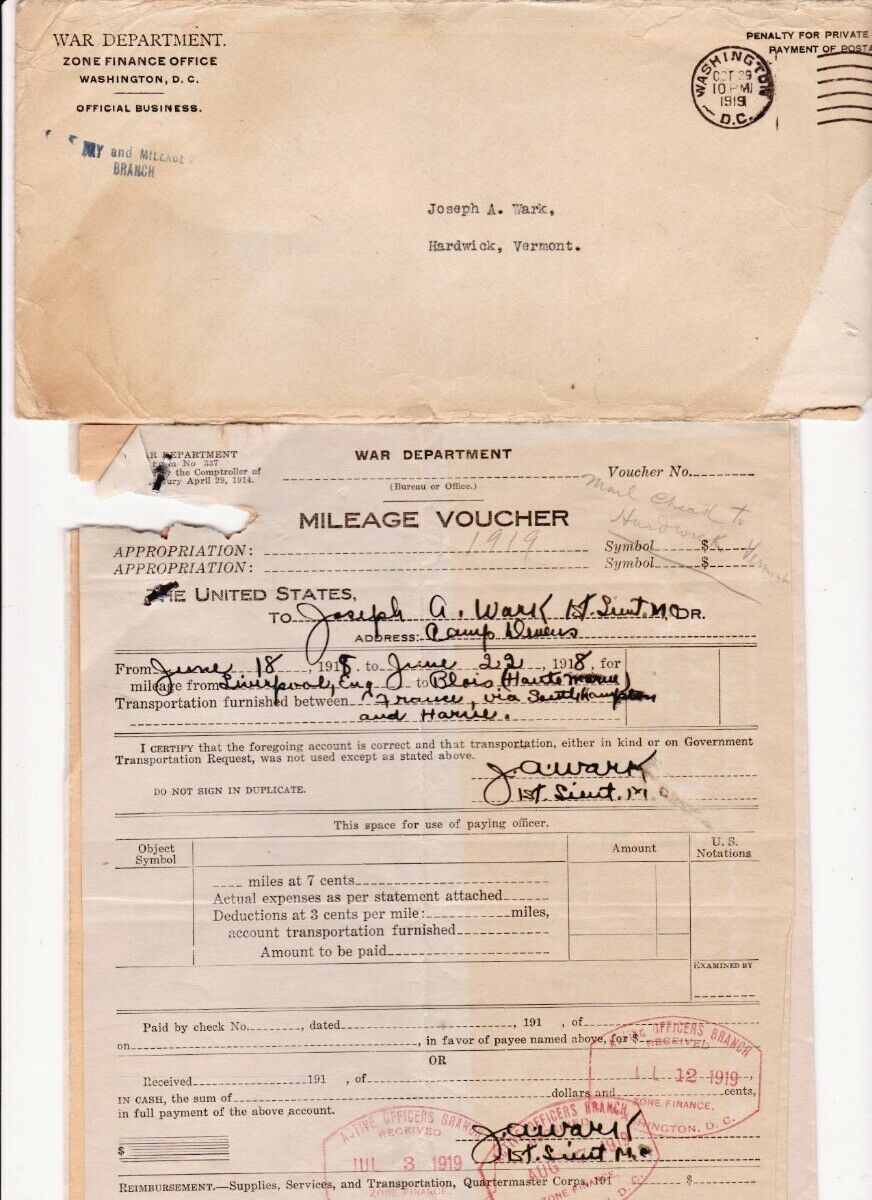 WAR DEPARTMENT.
ZONE FINANCE OFFICE
WASHINGTON, D. C.
OFFICIAL BUSINESS.
and MILEAGE
BRANCH
PENALTY FOR PRIVATE
PAYMENT OF POSTA
WASHINGTON
OCT 29
10 PM
1919
D.C.
Joseph A. Wark,
Hardwick, Vermont.
DEPARTMENT
No 337
the Comptroller of
ury April 29, 1914.
WAR DEPARTMENT
(Bureau or Office.)
Voucher No.
Mail Check to
Hardwick Vermont
MILEAGE VOUCHER
1919
APPROPRIATION: Symbol $
APPROPRIATION: Symbol $
THE UNITED STATES,
TO Joseph A. Wark 1st. Lieut. M.C. DR.
ADDRESS: Camp Devens
From June 18, 1918. to June 22, 1918, for
mileage from Liverpool, Eng to Blois (Haute Marne)
Transportation furnished between France, via Southhampton
and Harve.
I CERTIFY that the foregoing account is correct and that transportation, either in kind or on Government
Transportation Request, was not used except as stated above.
J.A. Wark
DO NOT SIGN IN DUPLICATE. 1st. Lieut. M.C.
This space for use of paying officer.
Object Symbol Amount U. S. Notations
miles at 7 cents
Actual expenses as per statement attached
Deductions at 3 cents per mile: miles,
account transportation furnished
Amount to be paid
EXAMINED BY
Paid by check No. , dated , 191 , of
on , in favor of payee named above, for $
OR
Received 191 , of
IN CASH, the sum of dollars and cents,
in full payment of the above account.
ACTIVE OFFICERS BRANCH
RECEIVED
12 1919
ZONE FINANCE,
WASHINGTON, D. C.
J.A. Wark
$ 1st. Lieut M.C.
ACTIVE OFFICERS BRANCH
RECEIVED
JUL 3 1919
ZONE FINANCE,
OFFICERS BRANCH
AUG 1919
ZONE FINANCE,
D. C.
REIMBURSEMENT.—Supplies, Services, and Transportation, Quartermaster Corps, 191 $